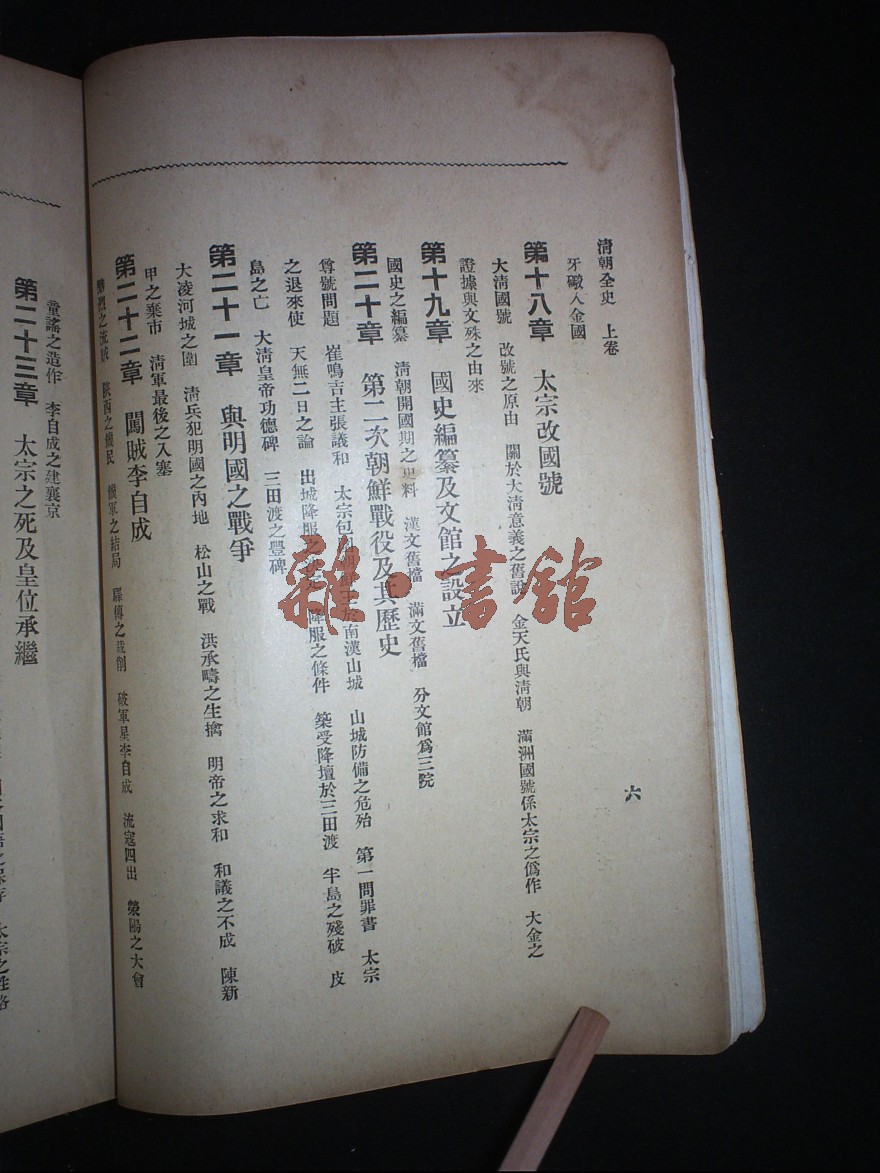 清朝全史 上卷
六
牙礮入金國
第十八章 太宗改國號
大淸國號 改號之原由 關於大淸意義之舊說 金天氏與淸朝 滿洲國號係太宗之僞作 大金之
證據與文殊之由來
第十九章 國史編纂及文館之設立
國史之編纂 淸朝開國期之史料 漢文舊檔 滿文舊檔 分文館爲三院
第二十章 第二次朝鮮戰役及其歷史
尊號問題 崔鳴吉主張議和 太宗包 南漢山城 山城防備之危殆 第一問罪書 太宗
之退來使 天無二日之論 出城降服之 降服之條件 築受降壇於三田渡 半島之殘破 皮
島之亡 大淸皇帝功德碑 三田渡之豐碑
第二十一章 與明國之戰爭
大凌河城之圍 淸兵犯明國之內地 松山之戰 洪承疇之生擒 明帝之求和 和議之不成 陳新
甲之棄市 淸軍最後之入塞
第二十二章 闖賊李自成
之流賊 陝西之饑民 饑軍之結局 驛傳之裁削 破軍星李自成 流寇四出 滎陽之大會
童謠之造作 李自成之建襄京
第二十三章 太宗之死及皇位承繼
太宗之性格
雜·書館